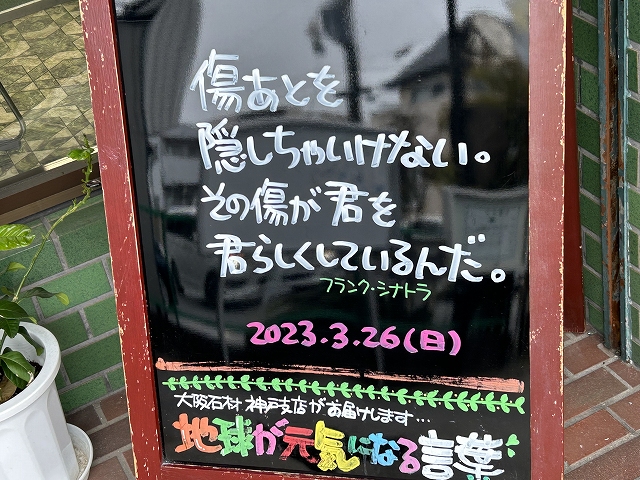 傷あとを
隠しちゃいけない。
その傷が君を
君らしくしているんだ。
フランク・シナトラ
2023.3.26(日)
大阪石材 神戸支店がお届けします…
地球が元気になる言葉